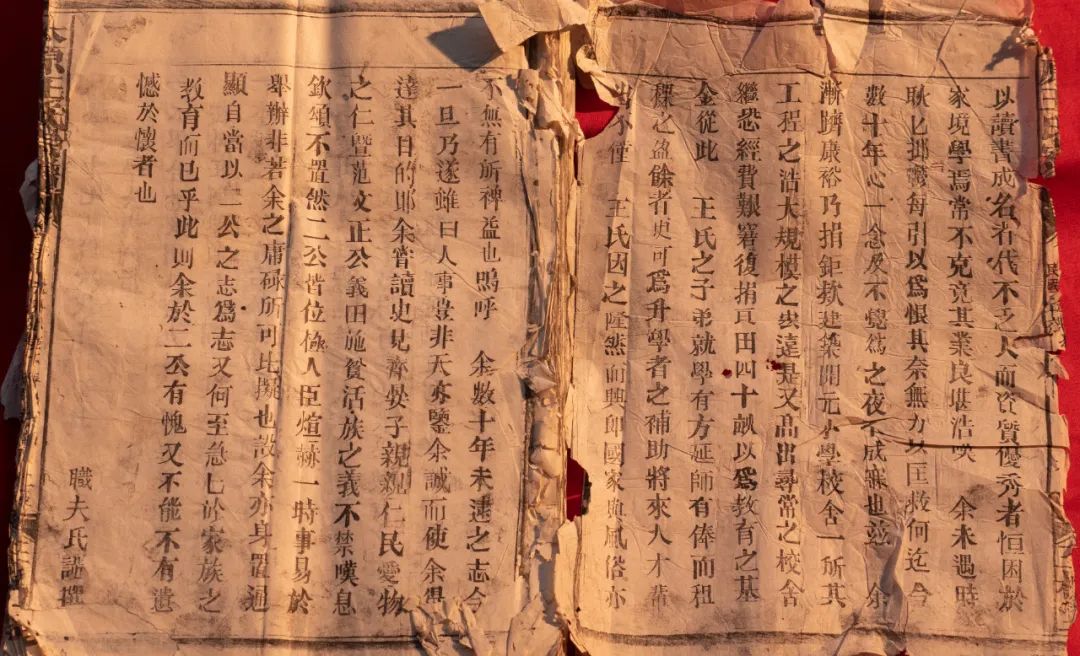 以讀書成名者代不乏人而資質優秀者恒困於
家境學焉常不克竟其業良堪浩嘆 余未遇時
耿耿抑鬱每引以爲恨其奈無力以匡救何迄今
數十年心一念及不覺爲之夜不成寐也茲 余
漸躋康裕乃捐鉅款建築開元小學校舍一所其
工程之浩大規模之宏遠是又高出尋常之校舍
繼恐經費艱窘復捐瓦田四十畝以爲教育之基
金從此 王氏之子弟就學有方延師有俸而租
稞之盈餘者更可爲升學者之補助將來人才輩
不僅 王氏因之隆然而興即國家與風俗亦
不無有所裨益也嗚呼 余數十年未達之志今
一旦乃遂雖曰人事豈非天亦鑒余誠而使余得
達其目的耶余嘗讀史見齊晏子親親仁民愛物
之仁暨范文正公義田施貧活族之義不禁嘆息
欽頌不置然二公皆位極人臣煊赫一時事易於
舉辦非若余之庸碌所可比擬也設余亦身置通
顯自當以二公之志爲志又何至急亡於家族之
教育而已乎此則余於二公有愧又不能不有遺
憾於懷者也
職夫氏謹撰
民國